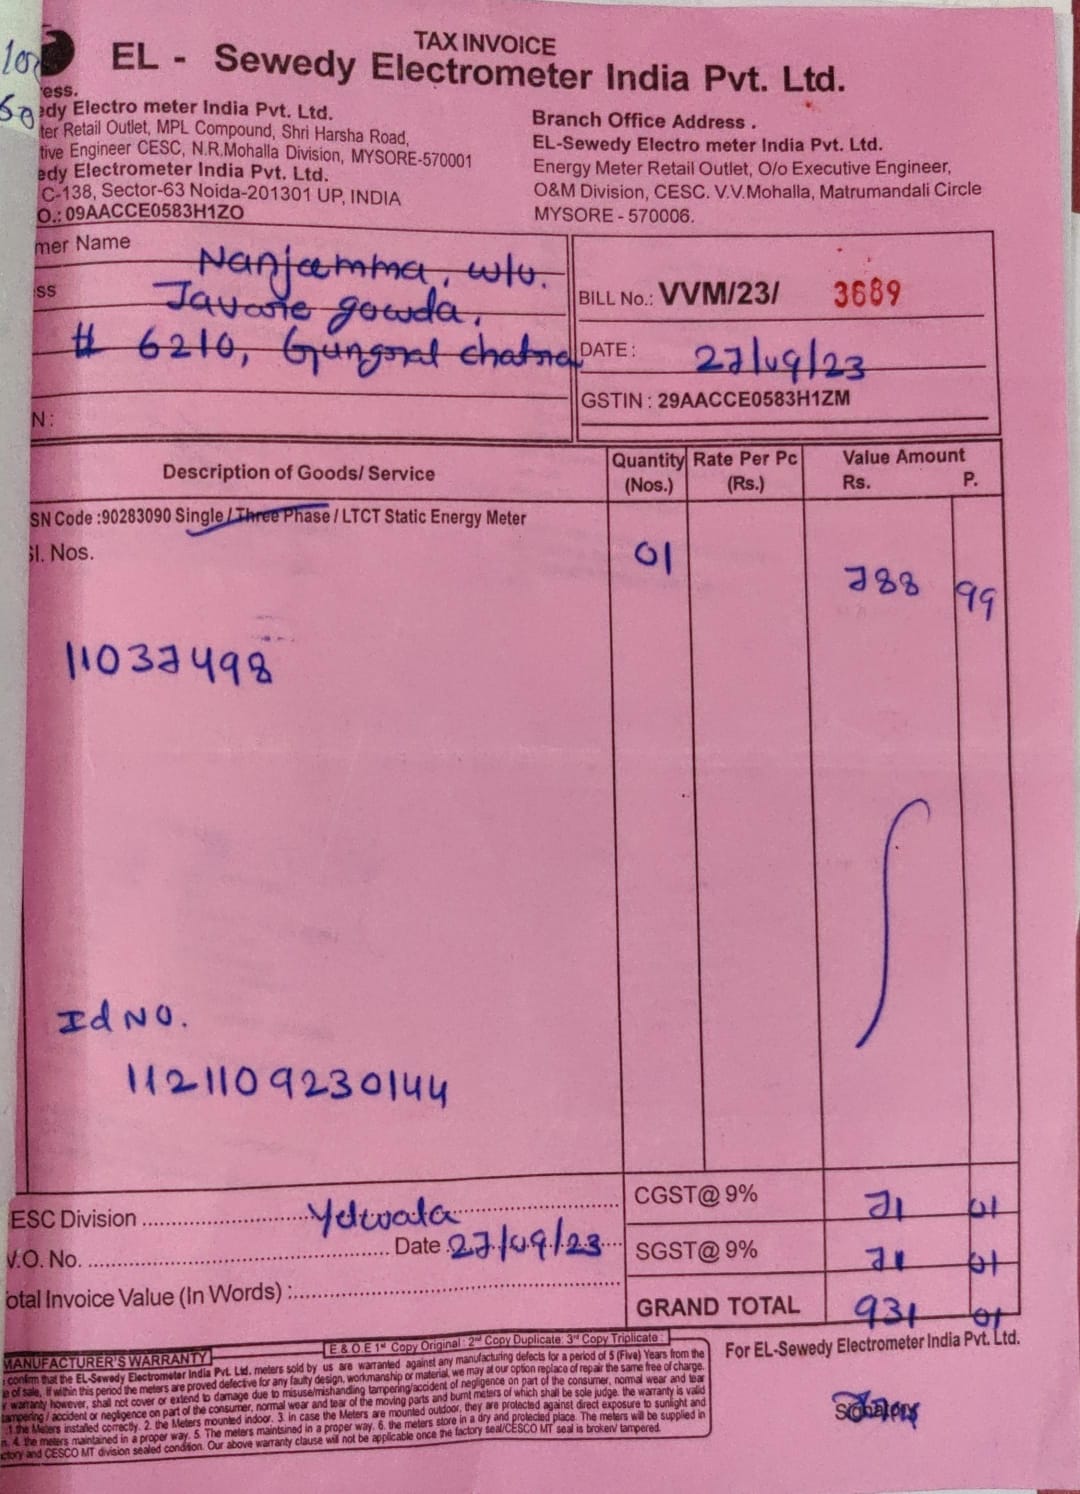 TAX INVOICE
EL - Sewedy Electrometer India Pvt. Ltd.
ess.
edy Electro meter India Pvt. Ltd.
ter Retail Outlet, MPL Compound, Shri Harsha Road,
tive Engineer CESC, N.R.Mohalla Division, MYSORE-570001
edy Electrometer India Pvt. Ltd.
C-138, Sector-63 Noida-201301 UP, INDIA
O.: 09AACCE0583H1ZO
Branch Office Address .
EL-Sewedy Electro meter India Pvt. Ltd.
Energy Meter Retail Outlet, O/o Executive Engineer,
O&M Division, CESC. V.V.Mohalla, Matrumandali Circle
MYSORE - 570006.
mer Name Nanjamma, w/o.
ss Javare gowda,
# 6210,
N :
BILL No.: VVM/23/ 3689
DATE : 27/09/23
GSTIN : 29AACCE0583H1ZM
Description of Goods/ Service
Quantity (Nos.)
Rate Per Pc (Rs.)
Value Amount
Rs. P.
SN Code :90283090 Single / Three Phase / LTCT Static Energy Meter
Sl. Nos.
01
788 99
11037498
Id No.
1121109230144
ESC Division Yelwala
V.O. No. Date 27/09/23
otal Invoice Value (In Words) :
CGST@ 9% 71 01
SGST@ 9% 71 01
GRAND TOTAL 931 01
E & O E 1st Copy Original : 2nd Copy Duplicate: 3rd Copy Triplicate :
MANUFACTURER'S WARRANTY
confirm that the EL-Sewedy Electrometer India Pvt. Ltd. meters sold by us are warranted against any manufacturing defects for a period of 5 (Five) Years from the
e of sale, If within this period the meters are proved defective for any faulty design, workmanship or material, we may at our option replace of repair the same free of charge.
warranty however, shall not cover or extend to damage due to misuse/mishandling tampering/accident of negligence on part of the consumer, normal wear and tear
tampering / accident or negligence on part of the consumer, normal wear and tear of the moving parts and burnt meters of which shall be sole judge. the warranty is valid
1.the Meters installed correctly. 2. the Meters mounted indoor. 3. in case the Meters are mounted outdoor, they are protected against direct exposure to sunlight and
n. 4. the meters maintained in a proper way. 5. The meters maintsined in a proper way. 6. the meters store in a dry and protected place. The meters will be supplied in
ctory and CESCO MT division sealed condition. Our above warranty clause will not be applicable once the factory seal/CESCO MT seal is broken/ tampered.
For EL-Sewedy Electrometer India Pvt. Ltd.